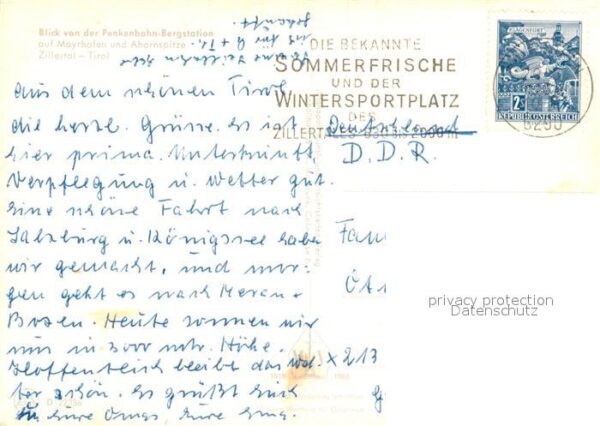 Blick von der Penkenbahn-Bergstation
auf Mayrhofen und Ahornspitze
Zillertal - Tirol
DIE BEKANNTE
SOMMERFRISCHE
UND DER
WINTERSPORTPLATZ
DES
ZILLERTALES 630 bis 2000 m
KLAGENFURT
2S
REPUBLIK ÖSTERREICH
6290
aus dem schönen Tirol
die herzl. Grüsse. Es ist
hier prima. Unterkunft
Verpflegung u. Wetter gut.
Eine schöne Fahrt nach
Salzburg u. Königssee haben
wir gemacht, und mor-
gen geht es nach Meran -
Bozen. Heute sonnen wir
uns in 3000 mtr. Höhe.
Hoffentlich bleibt das Wet-
ter schön. Es grüßt Euch
Eure Omas, Eure
Deutschland
D.D.R.
Fam
x 213
privacy protection
Datenschutz